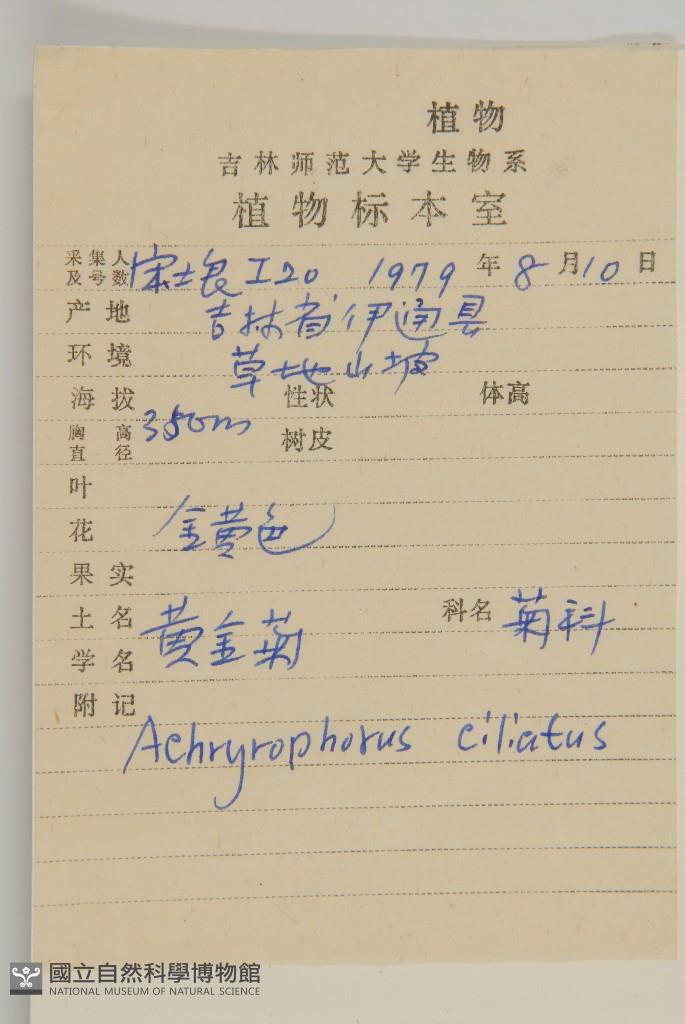 植物
吉林师范大学生物系
植物标本室
采集人及号数 宋士良 I20 1979年8月10日
产地 吉林省伊通县
环境 草地山坡
海拔 350m 性状 体高
胸高直径 树皮
叶
花 金黄色
果实
土名 黄金菊 科名 菊科
学名
附记
Achryrophorus ciliatus
國立自然科學博物館
NATIONAL MUSEUM OF NATURAL SCIENCE